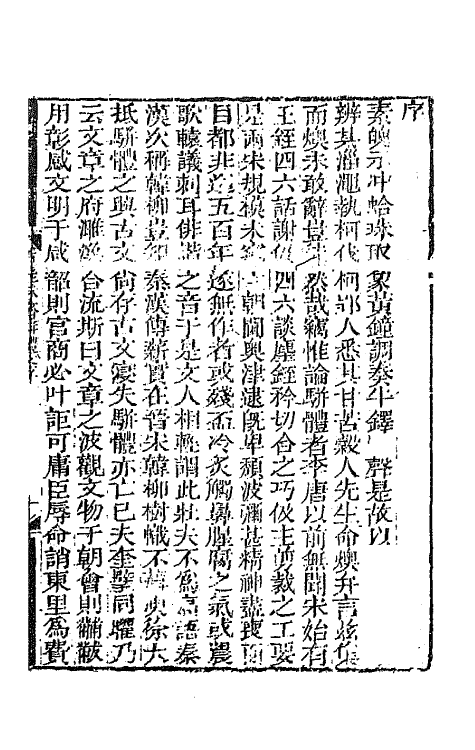 序
素魄示冲蛤珠取象黃鐘調奏牛鐸聲是故以
辨其淄澠執柯伐柯郢人悉其甘苦穀人先生命燠弁言茲集
而燠未敢辭豈不然哉竊惟論駢體者李唐以前無聞宋始有
王銍四六話謝伋四六談麈銍矜切合之巧伋主剪裁之工要
是兩宋規模未窺六朝閫奧津逮旣卑頹波彌甚精神盡喪面
目都非五百年遂無作者或殘盃冷炙觸鼻腥腐之氣或農
歌轅議刺耳俳諧之音于是文人相輕謂此壯夫不爲言語秦
漢次稱韓柳豈知秦漢傳薪實在晉宋韓柳樹幟不徐大
抵駢體之與古文尙存古文寖失駢體亦亡已夫奎壁同躔乃
云文章之府濰合流斯曰文章之波觀文物于朝會則黼黻
用彰感文明于咸韶則宮商必叶詎可庸臣辱命誚東里爲費